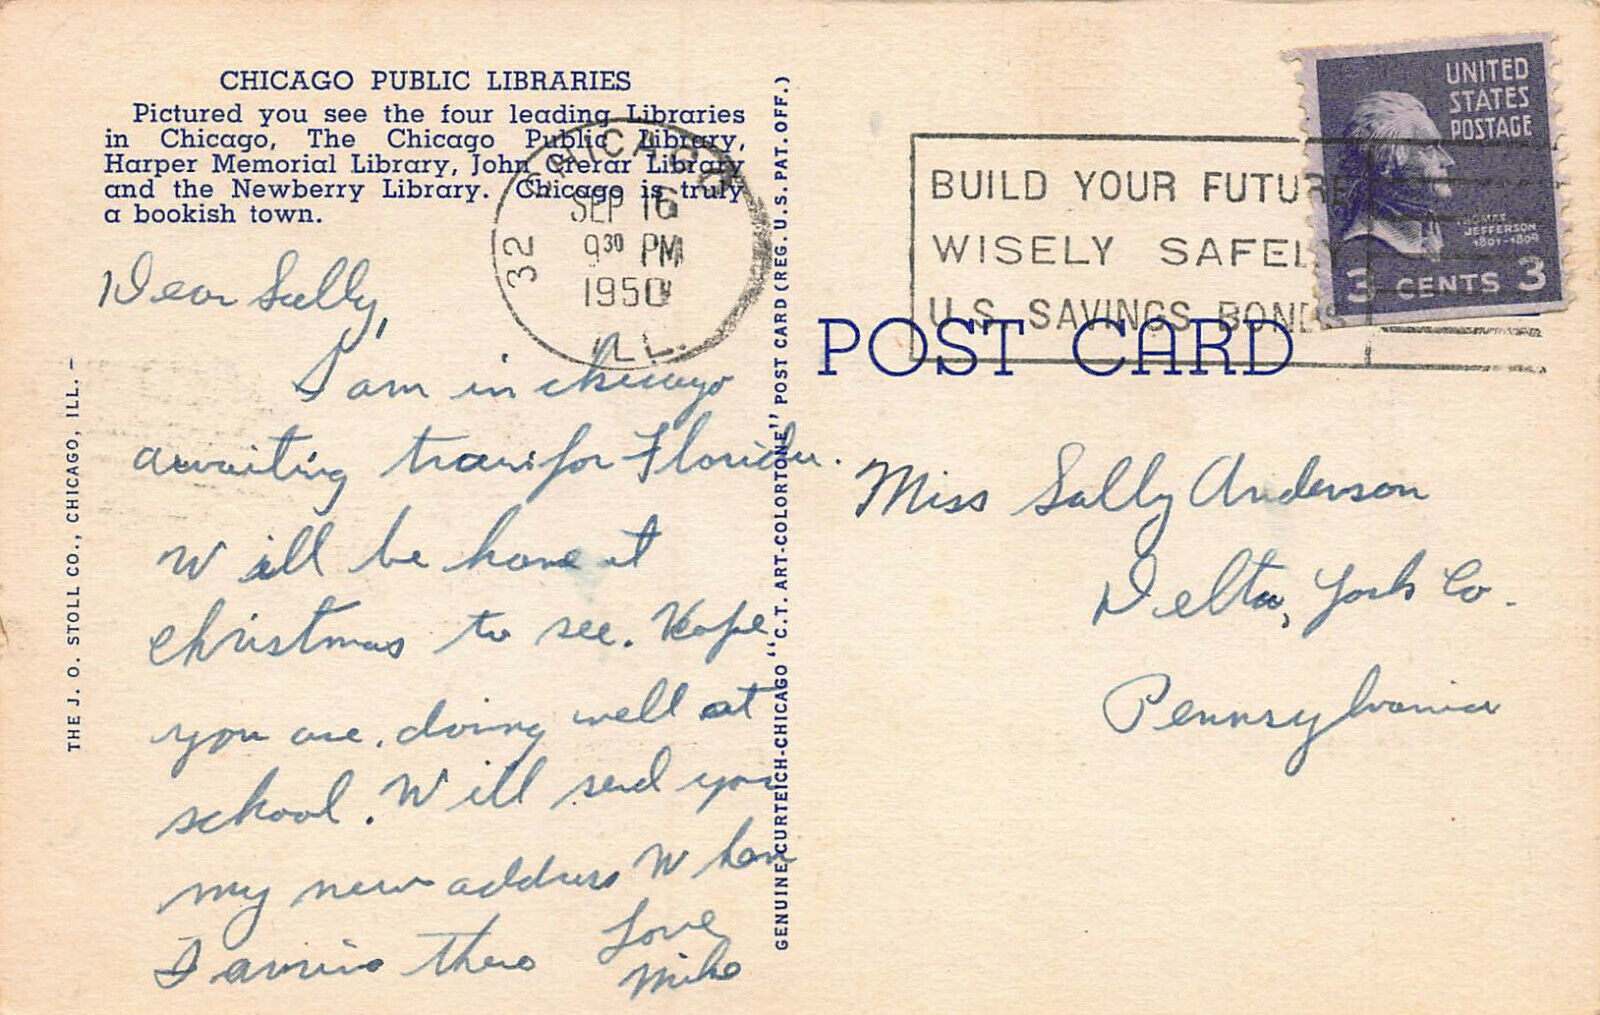 CHICAGO PUBLIC LIBRARIES
Pictured you see the four leading Libraries
in Chicago, The Chicago Public Library,
Harper Memorial Library, John Crerar Library
and the Newberry Library. Chicago is truly
a bookish town.
Dear Sally,
I am in chicago
awaiting train for Florida.
Will be home at
christmas to see. Hope
you are. doing well at
school. Will send you
my new address When
I arrive there
Love
Mike
THE J. O. STOLL CO., CHICAGO, ILL. -
GENUINE CURTEICH-CHICAGO "C.T. ART-COLORTONE" POST CARD (REG. U.S. PAT. OFF.)
CHICAGO
32
SEP 16
9 30 PM
1950
ILL.
BUILD YOUR FUTURE
WISELY SAFELY
U.S. SAVINGS BONDS
UNITED
STATES
POSTAGE
THOMAS
JEFFERSON
1801-1809
3 CENTS 3
POST CARD
Miss Sally Anderson
Delta, York Co.
Pennsylvania